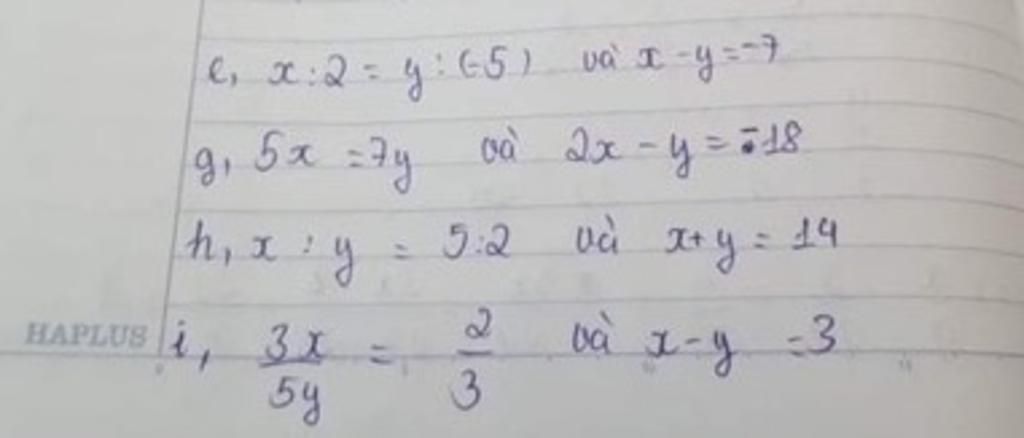 e, x : 2 = y : (-5) và x - y = -7
g, 5x = 7y và 2x - y = -18
h, x : y = 5 : 2 và x + y = 14
HAPLUS i, 3x/5y = 2/3 và x - y = 3